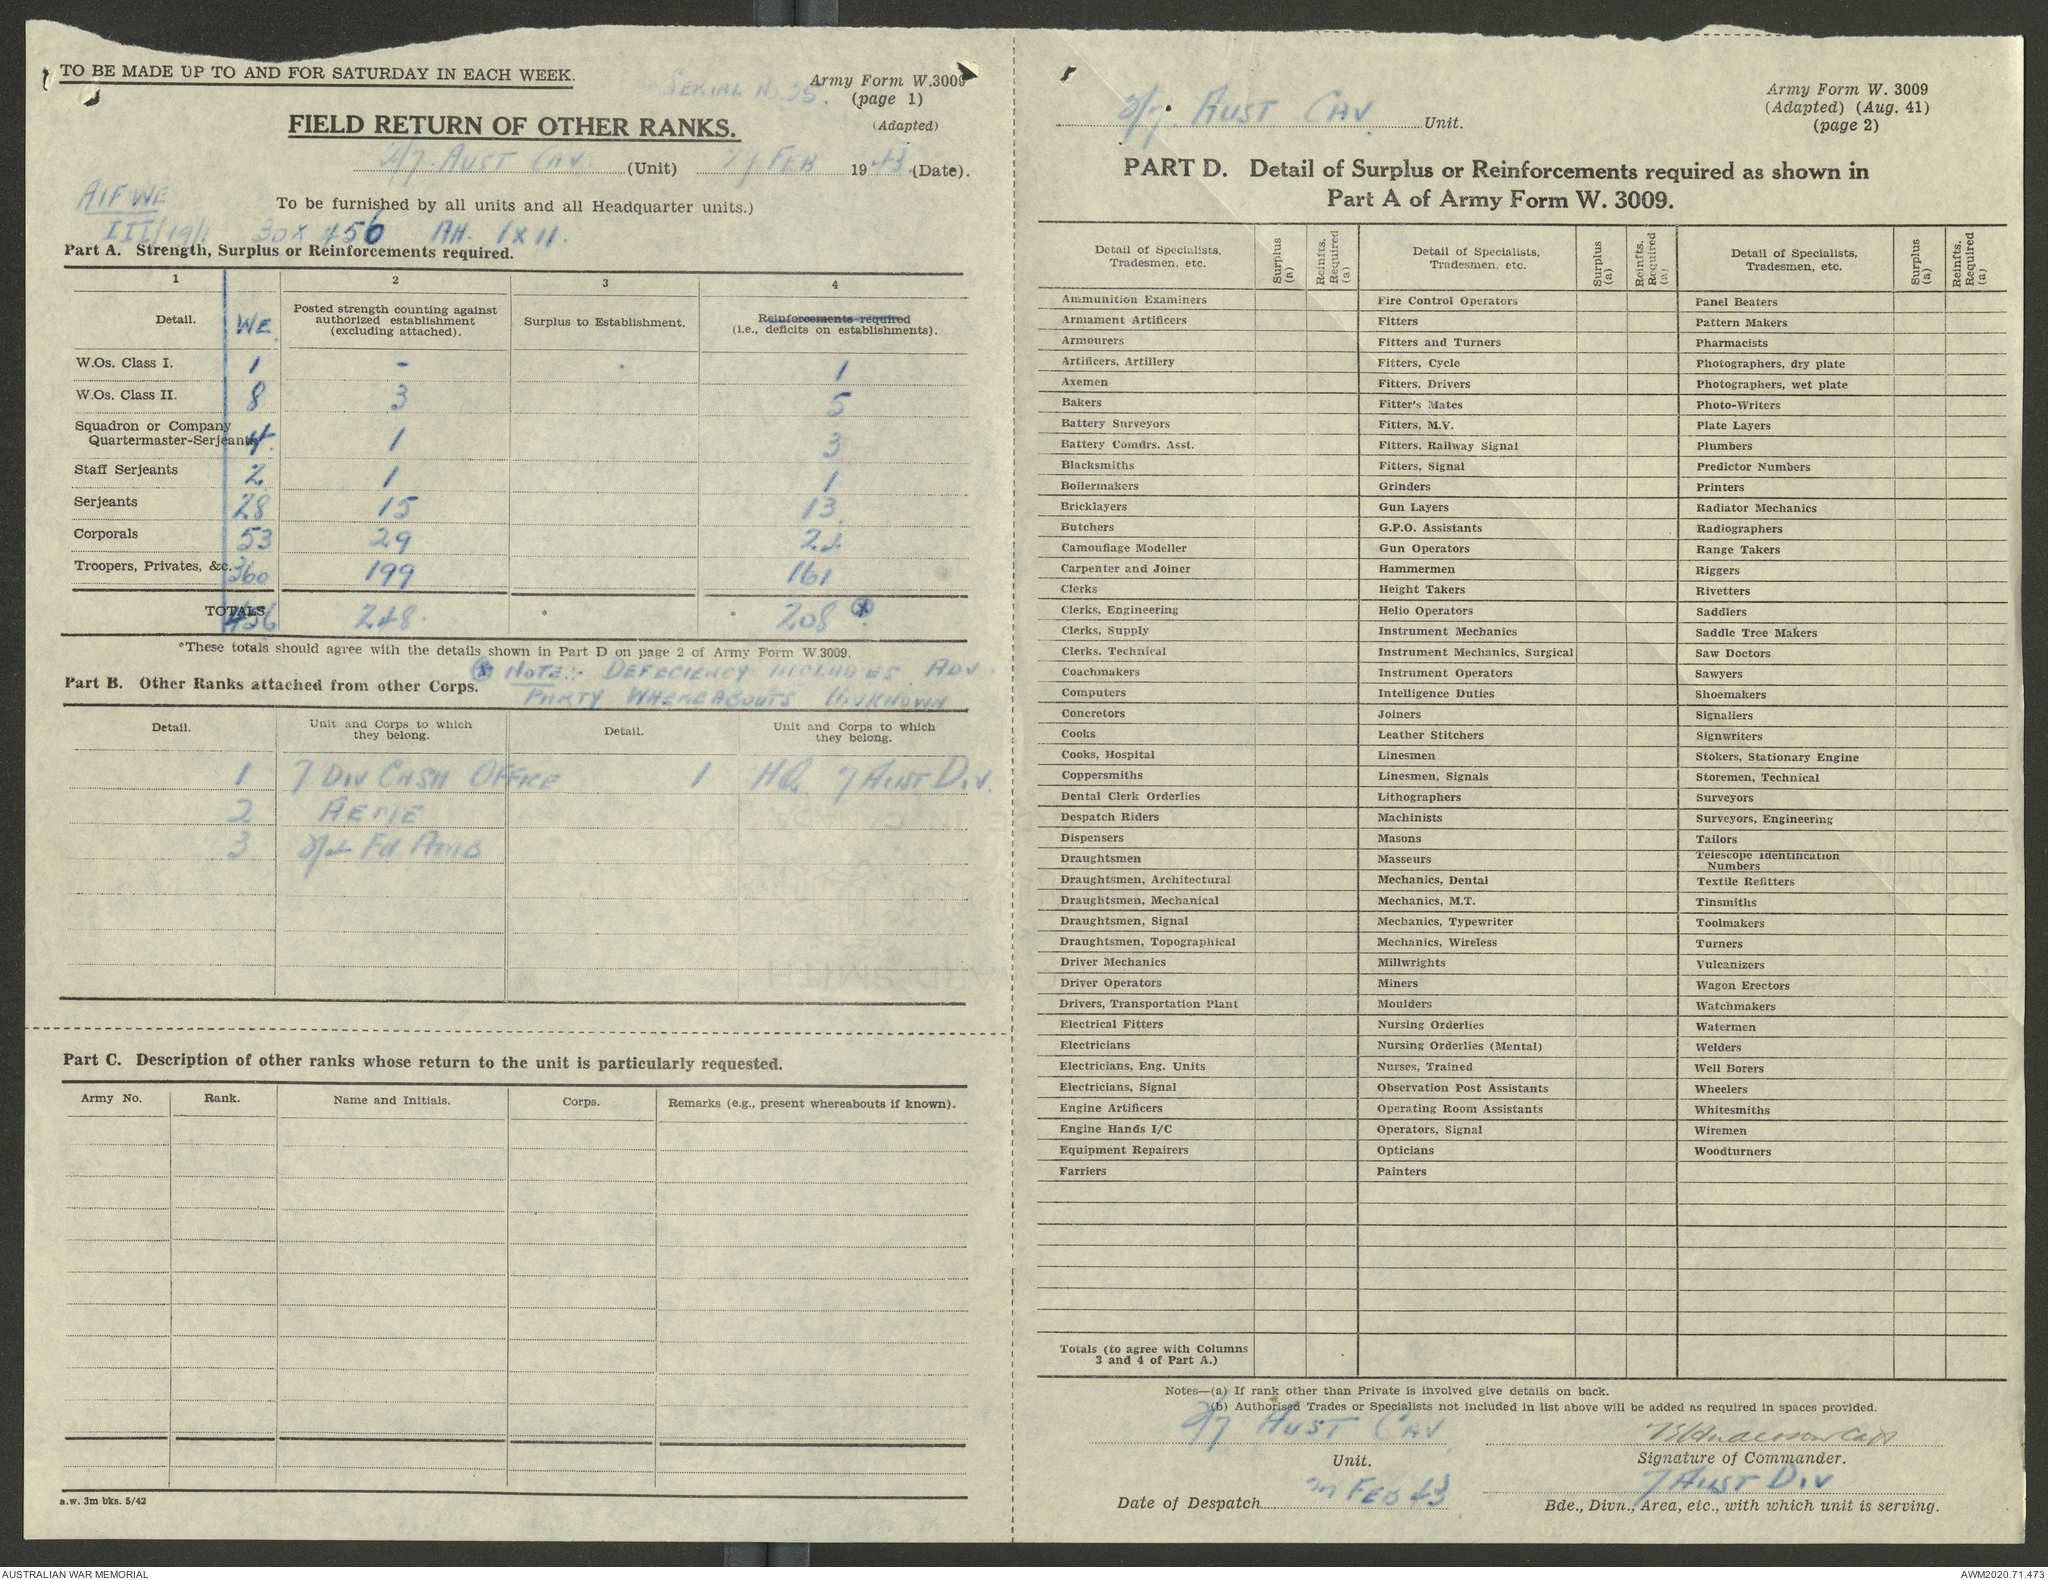 TO BE MADE UP TO AND FOR SATURDAY IN EACH WEEK.
SERIAL No 25.
Army Form W.3009
(page 1)
(Adapted)
FIELD RETURN OF OTHER RANKS.
2/7 AUST CAV (Unit) 27 FEB 1943 (Date).
AIF WE
III/19/1 30 x 456 AH. 1 x 11.
To be furnished by all units and all Headquarter units.)
Part A. Strength, Surplus or Reinforcements required.
1 2 3 4
Detail. WE Posted strength counting against authorized establishment (excluding attached). Surplus to Establishment. Reinforcements required (i.e., deficits on establishments).
W.Os. Class I. 1 - 1
W.Os. Class II. 8 3 5
Squadron or Company Quartermaster-Serjeants 4 1 3
Staff Serjeants 2 1 1
Serjeants 28 15 13
Corporals 53 29 24
Troopers, Privates, &c. 360 199 161
TOTALS 456 248 * * 208 x
*These totals should agree with the details shown in Part D on page 2 of Army Form W.3009.
x NOTE:- DEFECIENCY INCLUDES ADV
PARTY WHEREABOUTS UNKNOWN
Part B. Other Ranks attached from other Corps.
Detail. Unit and Corps to which they belong. Detail. Unit and Corps to which they belong.
1 7 DIV CASH OFFICE 1 HQ 7 AUST DIV.
2 AEME
3 2/4 Fd AMB
Part C. Description of other ranks whose return to the unit is particularly requested.
Army No. Rank. Name and Initials. Corps. Remarks (e.g., present whereabouts if known).
a.w. 3m bks. 5/42
2/7 AUST CAV Unit.
Army Form W. 3009
(Adapted) (Aug. 41)
(page 2)
PART D. Detail of Surplus or Reinforcements required as shown in
Part A of Army Form W. 3009.
Detail of Specialists, Tradesmen, etc. Surplus (a) Reinfts. Required (a) Detail of Specialists, Tradesmen, etc. Surplus (a) Reinfts. Required (a) Detail of Specialists, Tradesmen, etc. Surplus (a) Reinfts. Required (a)
Ammunition Examiners Fire Control Operators Panel Beaters
Armament Artificers Fitters Pattern Makers
Armourers Fitters and Turners Pharmacists
Artificers, Artillery Fitters, Cycle Photographers, dry plate
Axemen Fitters, Drivers Photographers, wet plate
Bakers Fitter's Mates Photo-Writers
Battery Surveyors Fitters, M.V. Plate Layers
Battery Comdrs. Asst. Fitters, Railway Signal Plumbers
Blacksmiths Fitters, Signal Predictor Numbers
Boilermakers Grinders Printers
Bricklayers Gun Layers Radiator Mechanics
Butchers G.P.O. Assistants Radiographers
Camouflage Modeller Gun Operators Range Takers
Carpenter and Joiner Hammermen Riggers
Clerks Height Takers Rivetters
Clerks, Engineering Helio Operators Saddlers
Clerks, Supply Instrument Mechanics Saddle Tree Makers
Clerks, Technical Instrument Mechanics, Surgical Saw Doctors
Coachmakers Instrument Operators Sawyers
Computers Intelligence Duties Shoemakers
Concretors Joiners Signallers
Cooks Leather Stitchers Signwriters
Cooks, Hospital Linesmen Stokers, Stationary Engine
Coppersmiths Linesmen, Signals Storemen, Technical
Dental Clerk Orderlies Lithographers Surveyors
Despatch Riders Machinists Surveyors, Engineering
Dispensers Masons Tailors
Draughtsmen Masseurs Telescope Identification Numbers
Draughtsmen, Architectural Mechanics, Dental Textile Refitters
Draughtsmen, Mechanical Mechanics, M.T. Tinsmiths
Draughtsmen, Signal Mechanics, Typewriter Toolmakers
Draughtsmen, Topographical Mechanics, Wireless Turners
Driver Mechanics Millwrights Vulcanizers
Driver Operators Miners Wagon Erectors
Drivers, Transportation Plant Moulders Watchmakers
Electrical Fitters Nursing Orderlies Watermen
Electricians Nursing Orderlies (Mental) Welders
Electricians, Eng. Units Nurses, Trained Well Borers
Electricians, Signal Observation Post Assistants Wheelers
Engine Artificers Operating Room Assistants Whitesmiths
Engine Hands I/C Operators, Signal Wiremen
Equipment Repairers Opticians Woodturners
Farriers Painters
Totals (to agree with Columns 3 and 4 of Part A.)
Notes—(a) If rank other than Private is involved give details on back.
(b) Authorised Trades or Specialists not included in list above will be added as required in spaces provided.
2/7 AUST CAV
Unit. Signature of Commander.
27 FEB 43 7 AUST DIV
Date of Despatch Bde., Divn., Area, etc., with which unit is serving.
AUSTRALIAN WAR MEMORIAL AWM2020.71.473